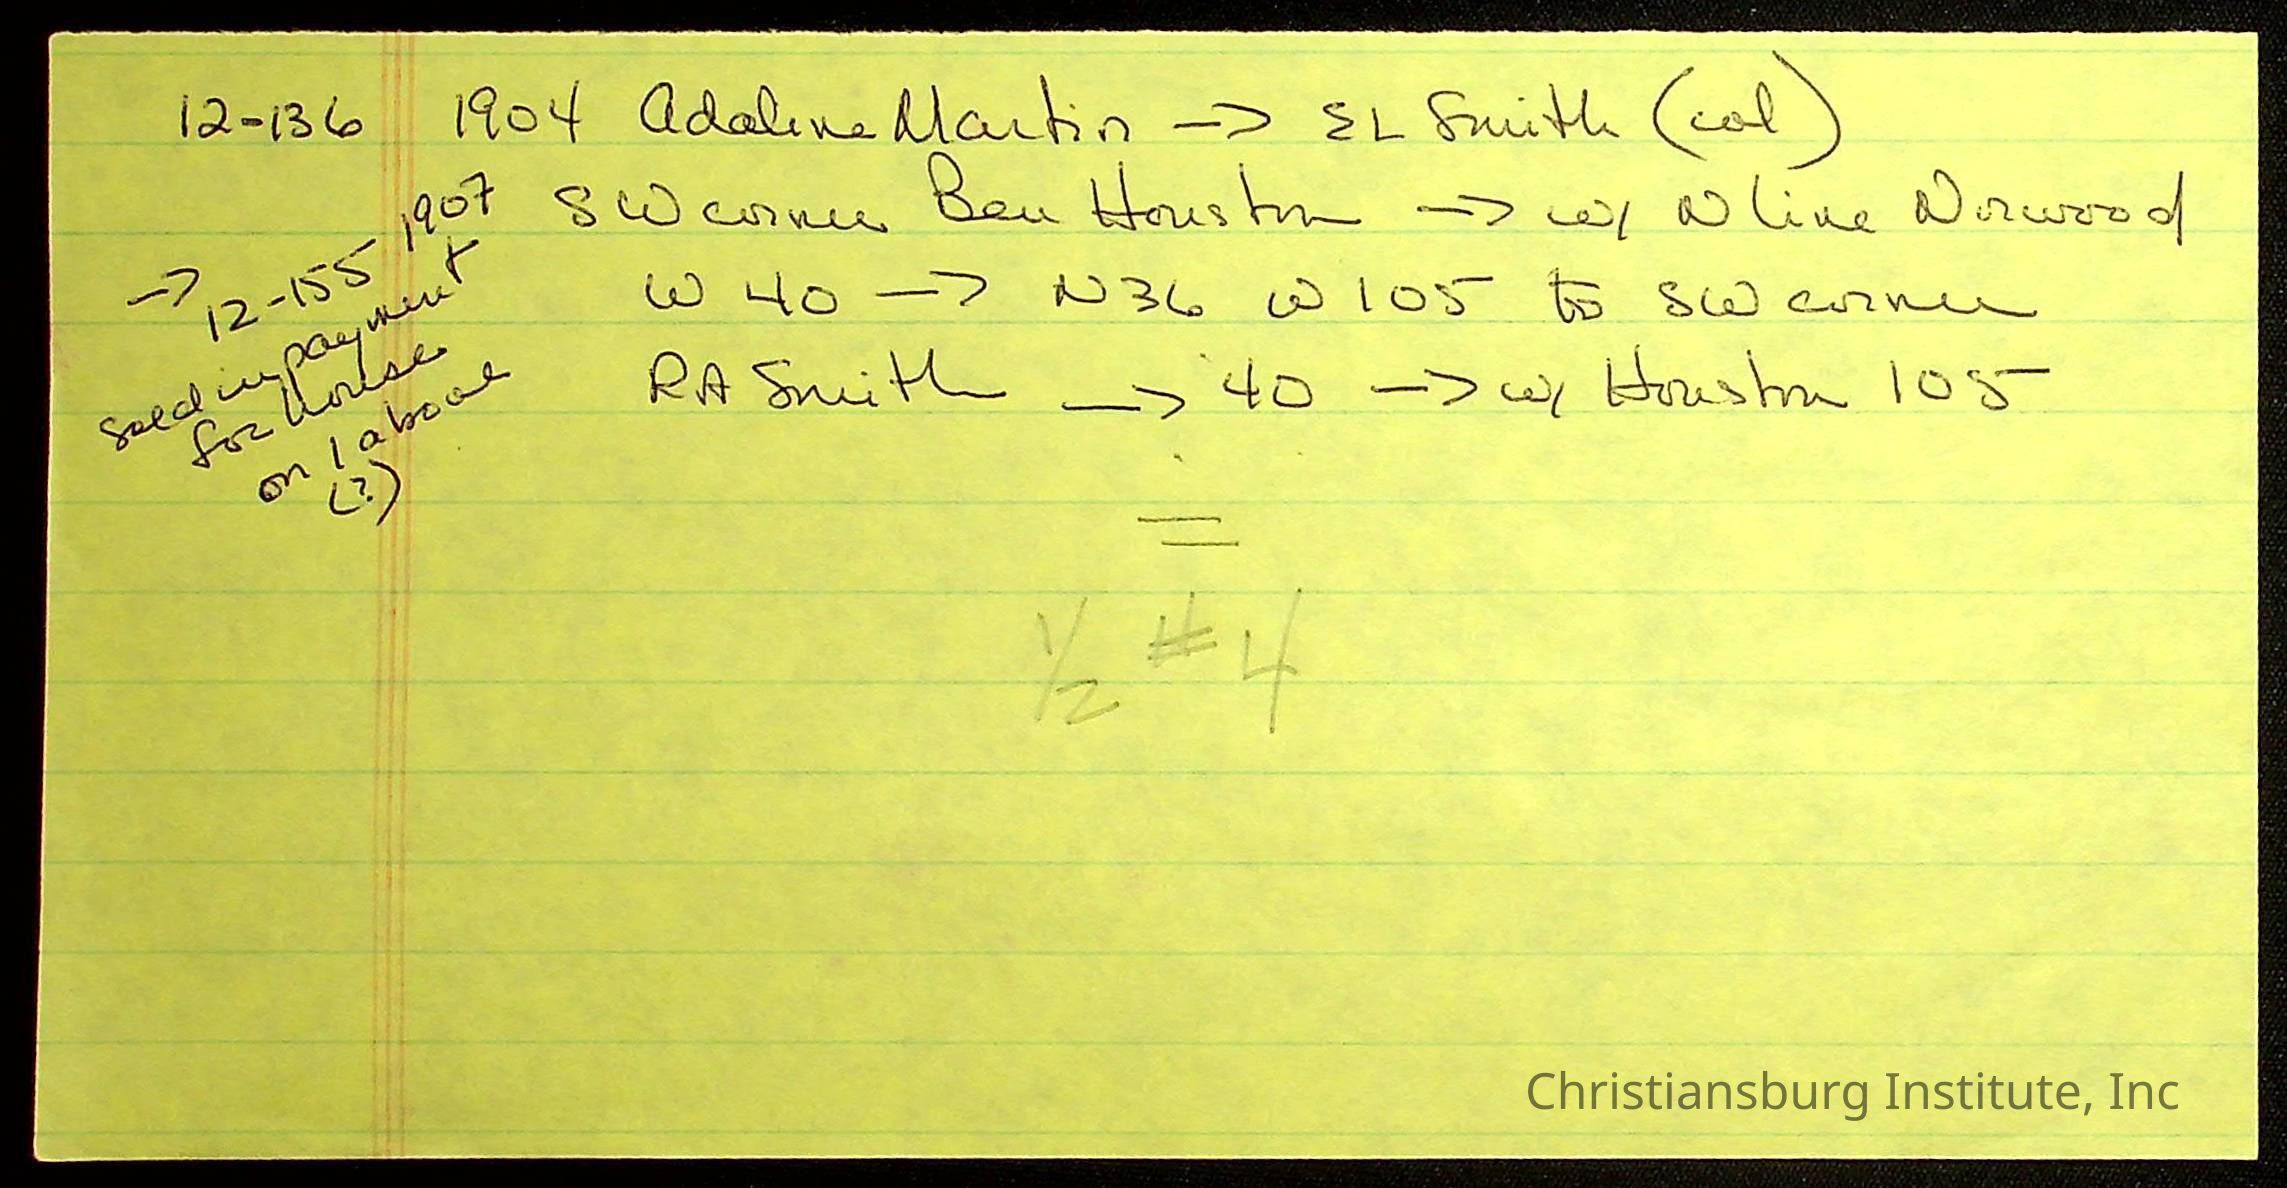 12-136 1904 Adaline Martin -> EL Smith (col)
SW corner Ben Houston -> w/ N line Norwood
W 40 -> N36 W 105 to SW corner
RA Smith -> 40 -> w/ Houston 105
-> 12-155 1907
sold in payment
for house
on 1 above
(?)
=
1/2 #4
Christiansburg Institute, Inc